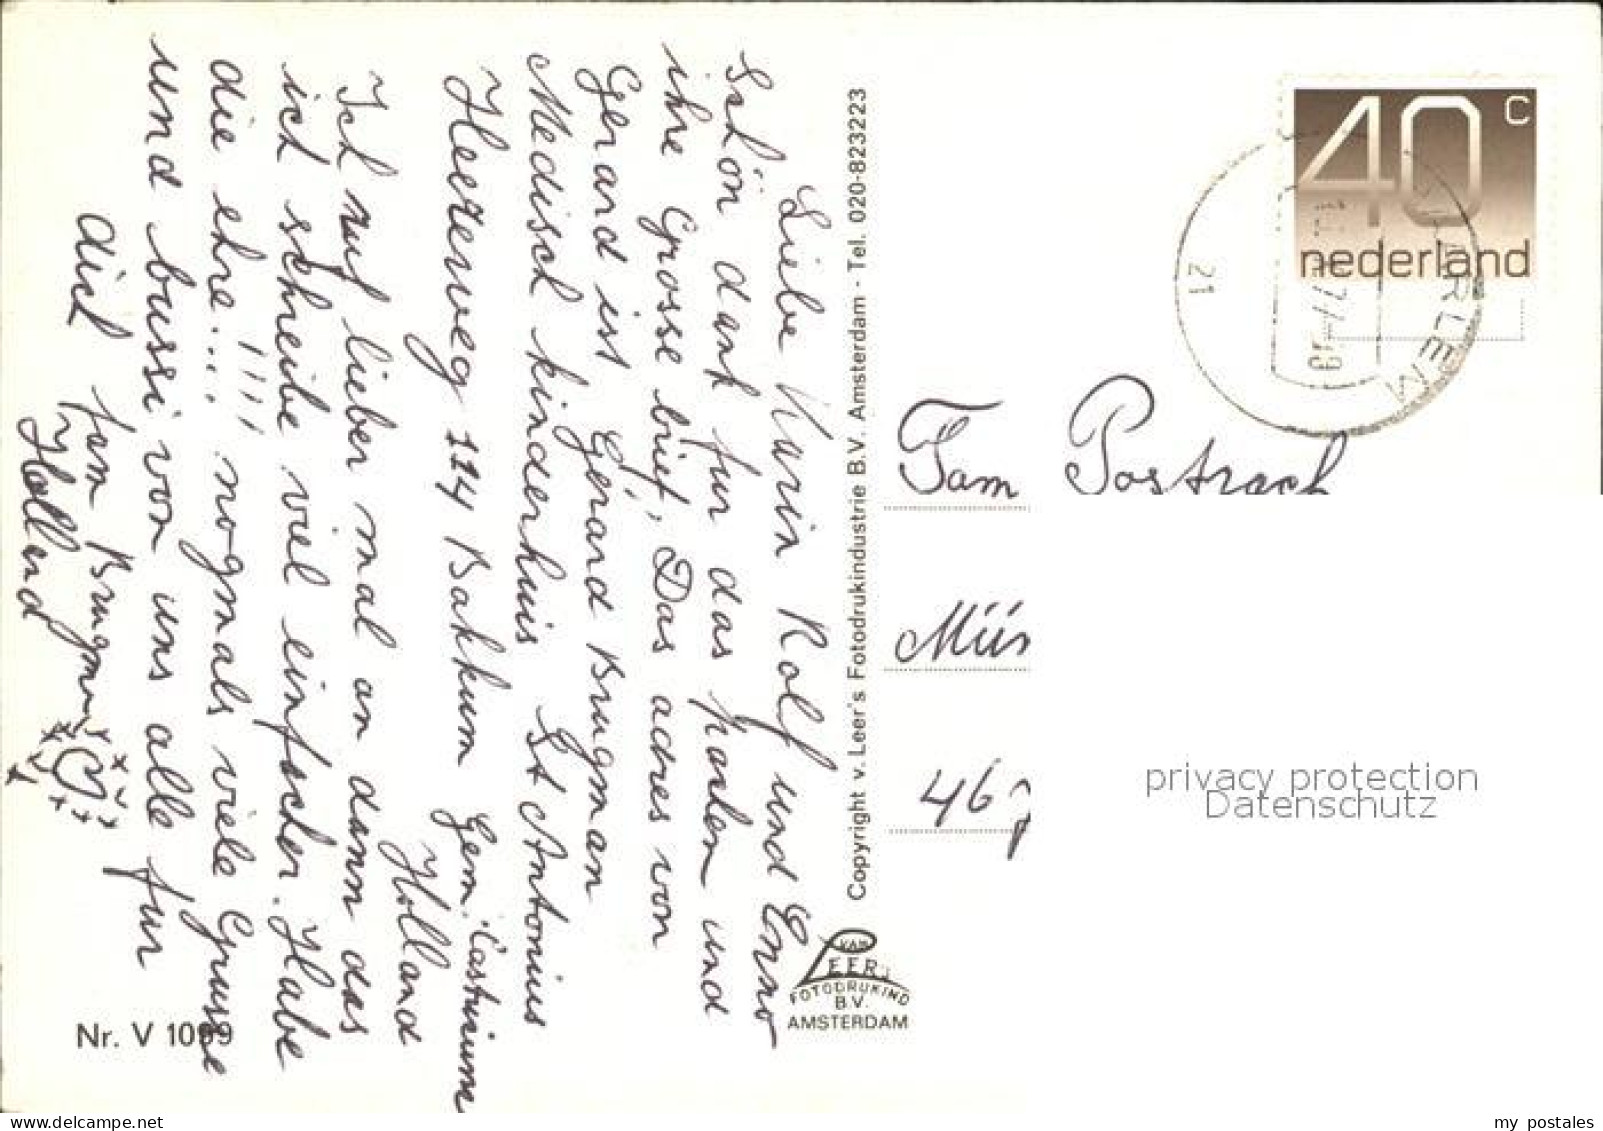 Liebe Karin Rolf und Enno
Schön dank fur das paden und
ihre Grosse brief, Das adres von
Gerard ist Gerard Brugman
Medisch kinderhuis St Antonius
Heereweg 114 Bakkum Gem. Castricum
Holland
Ich ruf lieber mal an dann das
ich schreibe viel einfacher. Habe
die ehre.... !!!! nogmals viele Grusse
und bussi von uns alle fur
dich fam Brugman
Holland
Nr. V 1099
Copyright v. Leer's Fotodrukindustrie B.V. Amsterdam - Tel. 020-823223
VAN
LEER
FOTODRUKIND
B.V.
AMSTERDAM
40 c
nederland
HAARLEM
21
Fam Postrach
Mün
46
privacy protection
Datenschutz
my postales